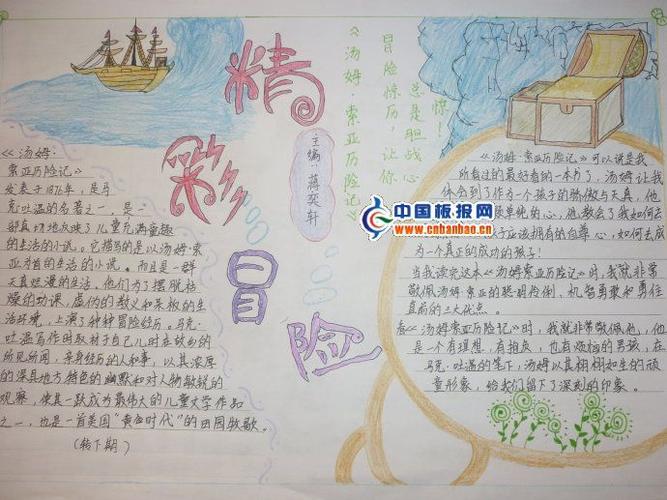 精
彩
冒
险
主编：蒋奕轩
《汤姆·索亚历险记》
冒险惊历，让你
总是胆战心
惊！
《汤姆·
索亚历险记》
发表于1876年，是马
克·吐温的名著之一，是一
部真切地反映了儿童充满童趣
的生活的小说。它描写的是以汤姆·索
亚为首的生活的小说。而且是一群
天真烂漫的生活，他们为了摆脱枯
燥的功课，虚伪的教义和呆板的生
活环境，上演了种种冒险经历，马克·
吐温写作时取材于自己儿时在故乡的
所见所闻，亲身经历的人和事，以其浓厚
的深具地方特色的幽默和对人物敏锐的
观察，使其一跃成为最伟大的儿童文学作品
之一，也是一首美国“黄金时代”的田园牧歌。
（转下期）
《汤姆·索亚历险记》可以说是我
所看过的最好看的一本书了，汤姆让我
体会到了作为一个孩子的骄傲与天真，他
单纯的心，他教会了我如何去
子应该拥有的自尊心，如何去成
为一个真正的成功的孩子！
当我读完这本《汤姆索亚历险记》时，我就非常
敬佩汤姆·索亚的聪明伶俐、机智勇敢和勇往
直前的三大优点。
在《汤姆索亚历险记》时，我就非常敬佩他，他
是一个有理想，有抱负，也有烦恼的男孩，在
马克·吐温的笔下，汤姆以其栩栩如生的顽
童形象，给我们留下了深刻的印象。
中国板报网
www.cnbanbao.cn